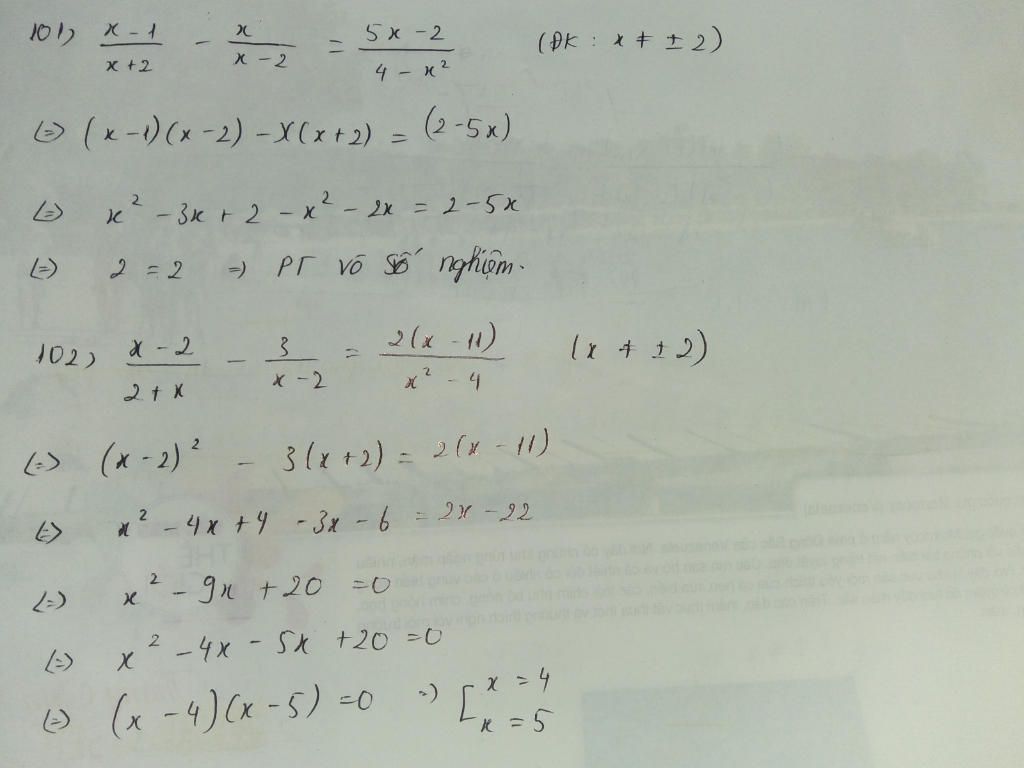 101) (x-1)/(x+2) - x/(x-2) = (5x-2)/(4-x²) (ĐK: x ≠ ±2)
(=) (x-1)(x-2) - x(x+2) = (2-5x)
(=) x² - 3x + 2 - x² - 2x = 2 - 5x
(=) 2 = 2 => PT vô số nghiệm.
102) (x-2)/(2+x) - 3/(x-2) = 2(x-11)/(x²-4) (x ≠ ±2)
(=) (x-2)² - 3(x+2) = 2(x-11)
(=) x² - 4x + 4 - 3x - 6 = 2x - 22
(=) x² - 9x + 20 = 0
(=) x² - 4x - 5x + 20 = 0
(=) (x-4)(x-5) = 0 =) [ x = 4
x = 5